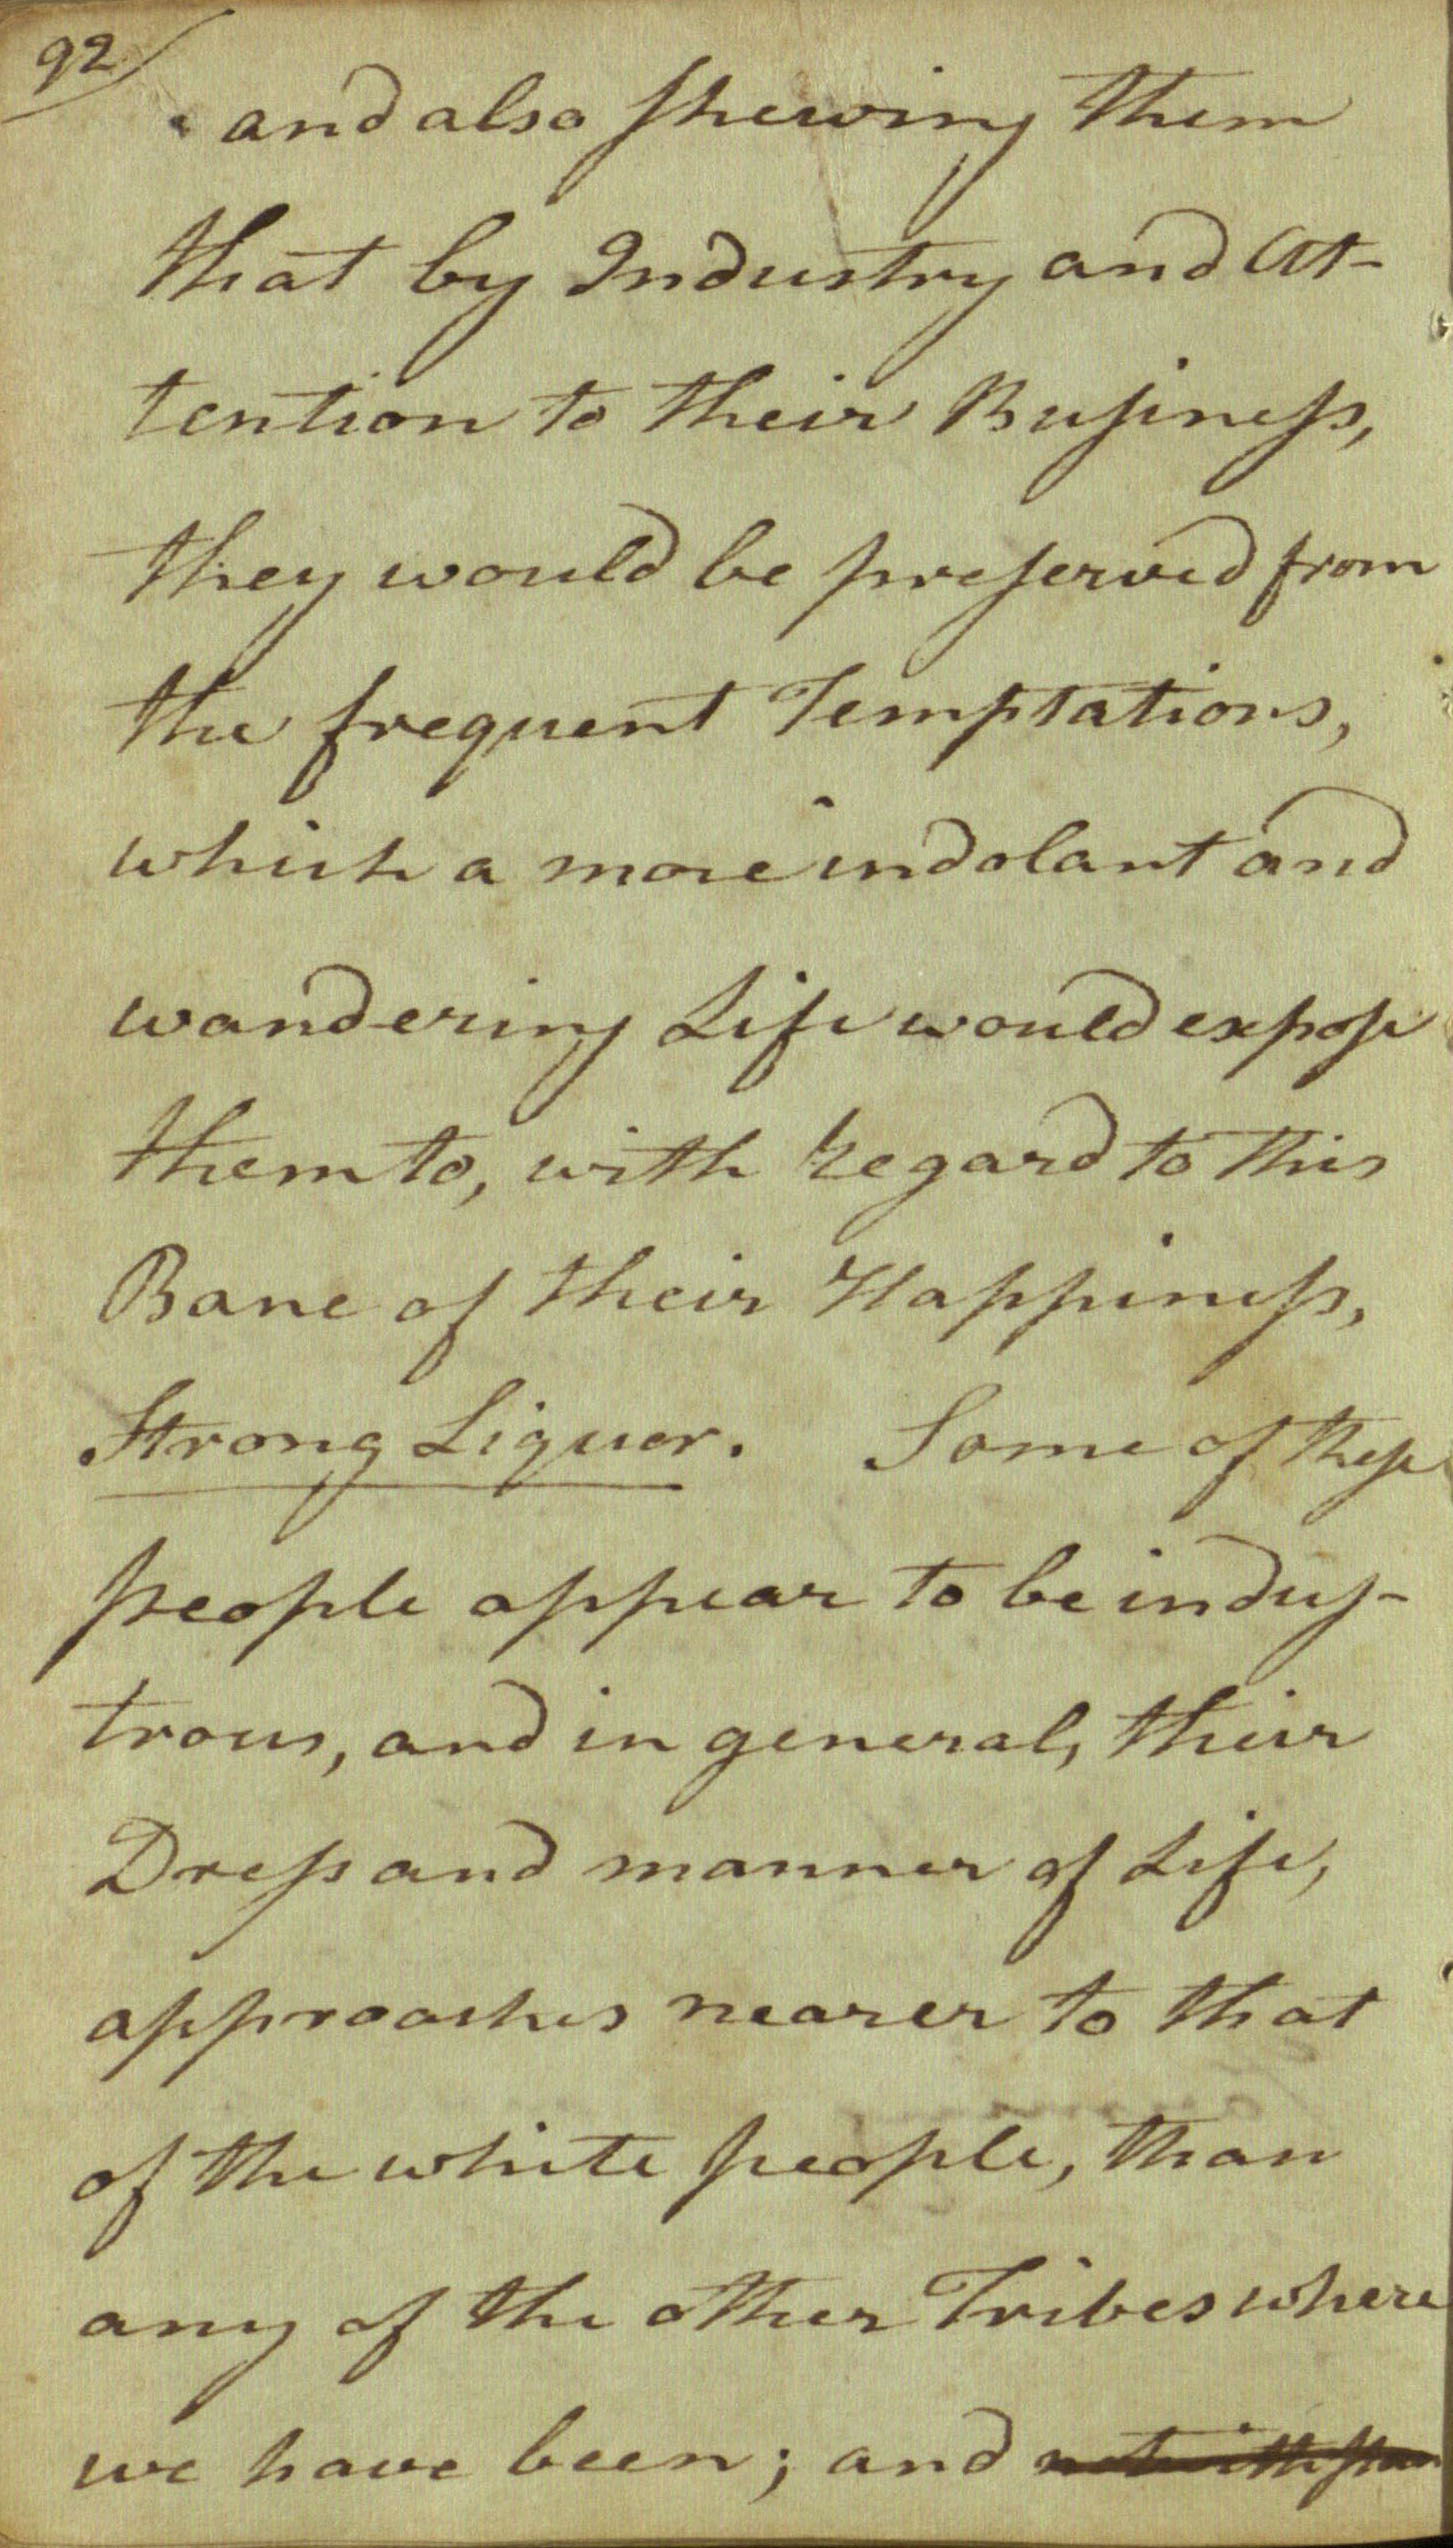 92
and also shewing them
that by Industry and At-
tention to their Business,
they would be preserved from
the frequent Temptations,
which a more indolant and
wandering Life would expose
them to, with Regard to this
Bane of their Happiness,
Strong Liquor. Some of these
people appear to be indus-
trous, and in general, their
Dress and manner of Life,
approaches nearer to that
of the white people, than
any of the other Tribes where
we have been; and notwithstan